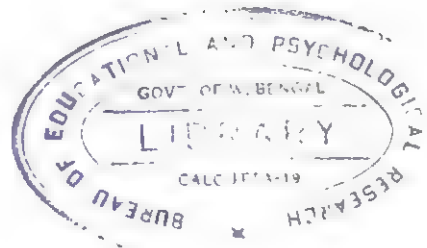 BUREAU OF EDUCATIONAL AND PSYCHOLOGICAL RESEARCH
GOVT OF W. BENGAL
LIBRARY
CALCUTTA-19